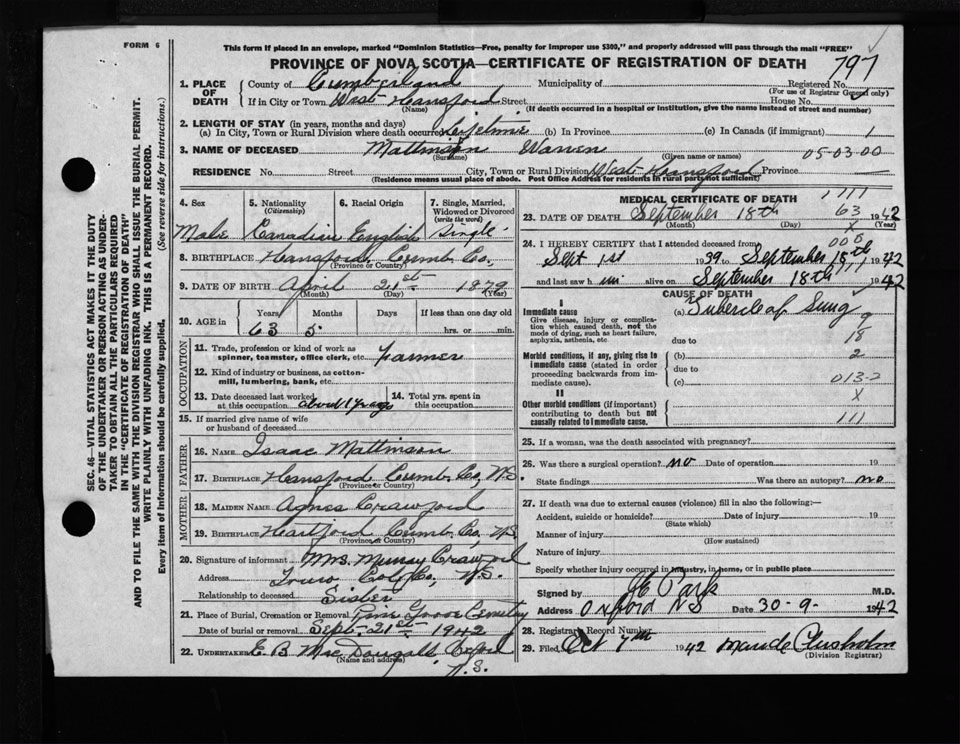 FORM 6
This form if placed in an envelope, marked "Dominion Statistics—Free, penalty for improper use $300," and properly addressed will pass through the mail "FREE"
PROVINCE OF NOVA SCOTIA—CERTIFICATE OF REGISTRATION OF DEATH
797
1. PLACE OF DEATH
County of Cumberland Municipality of Registered No.
(For use of Registrar General only)
If in City or Town West Hansford Street House No.
(Name) (If death occurred in a hospital or institution, give the name instead of street and number)
2. LENGTH OF STAY (in years, months and days)
(a) In City, Town or Rural Division where death occurred Lifetime (b) In Province (c) In Canada (if immigrant) 1
3. NAME OF DECEASED Mattinson Warren 05-03-00
(Surname) (Given name or names)
RESIDENCE No. Street City, Town or Rural Division West Hansford Province
(Residence means usual place of abode. Post Office Address for residents in rural parts not sufficient)
4. Sex
Male
5. Nationality
(Citizenship)
Canadian
6. Racial Origin
English
7. Single, Married, Widowed or Divorced
(write the word)
Single
8. BIRTHPLACE Hansford, Cumb. Co,
(Province or Country)
9. DATE OF BIRTH April 21st 1879
(Month) (Day) (Year)
10. AGE in Years Months Days If less than one day old
63 5 hrs. or min.
OCCUPATION
11. Trade, profession or kind of work as spinner, teamster, office clerk, etc. Farmer
12. Kind of industry or business, as cotton-mill, lumbering, bank, etc.
13. Date deceased last worked at this occupation about 1 years
14. Total yrs. spent in this occupation
15. If married give name of wife or husband of deceased
FATHER
16. NAME Isaac Mattinson
17. BIRTHPLACE Hansford Cumb. Co, N.S.
(Province or Country)
MOTHER
18. MAIDEN NAME Agnes Crawford
19. BIRTHPLACE Hartford Cumb. Co, N.S.
(Province or Country)
20. Signature of informant Mrs. Murray Crawford
Address Truro Col. Co, N.S.
Relationship to deceased Sister
21. Place of Burial, Cremation or Removal Pine Grove Cemetery
Date of burial or removal Sept. 21st 1942
22. UNDERTAKER E B MacDougall, Oxford N.S.
(Name and address)
MEDICAL CERTIFICATE OF DEATH
1111
23. DATE OF DEATH September 18th 63 1942
(Month) (Day) X
24. I HEREBY CERTIFY that I attended deceased from
Sept 1st 1939 to September 18th 1942
and last saw him alive on September 18th 1942
CAUSE OF DEATH
I
Immediate cause
Give disease, injury or complication which caused death, not the mode of dying, such as heart failure, asphyxia, asthenia, etc
(a) Tubercle of Lung
9
due to 18
Morbid conditions, if any, giving rise to immediate cause (stated in order proceeding backwards from immediate cause).
(b) 2
due to
(c) 013-2
II
X
Other morbid conditions (if important) contributing to death but not causally related to immediate cause.
111
25. If a woman, was the death associated with pregnancy?
26. Was there a surgical operation? no Date of operation 19
State findings Was there an autopsy? no
27. If death was due to external causes (violence) fill in also the following:—
Accident, suicide or homicide? Date of injury 19
(State which)
Manner of injury
(How sustained)
Nature of injury
Specify whether injury occurred in industry, in home, or in public place
Signed by Park M.D.
Address Oxford NS Date 30-9- 1942
28. Registrars Record Number
29. Filed Oct 7th 1942 Maude Chisholm
(Division Registrar)
SEC. 46—VITAL STATISTICS ACT MAKES IT THE DUTY
OF THE UNDERTAKER OR PERSON ACTING AS UNDER-
TAKER TO OBTAIN ALL THE PARTICULARS REQUIRED
IN THE "CERTIFICATE OF REGISTRATION OF DEATH"
AND TO FILE THE SAME WITH THE DIVISION REGISTRAR WHO SHALL ISSUE THE BURIAL PERMIT.
WRITE PLAINLY WITH UNFADING INK. THIS IS A PERMANENT RECORD.
Every item of Information should be carefully supplied. (See reverse side for instructions.)